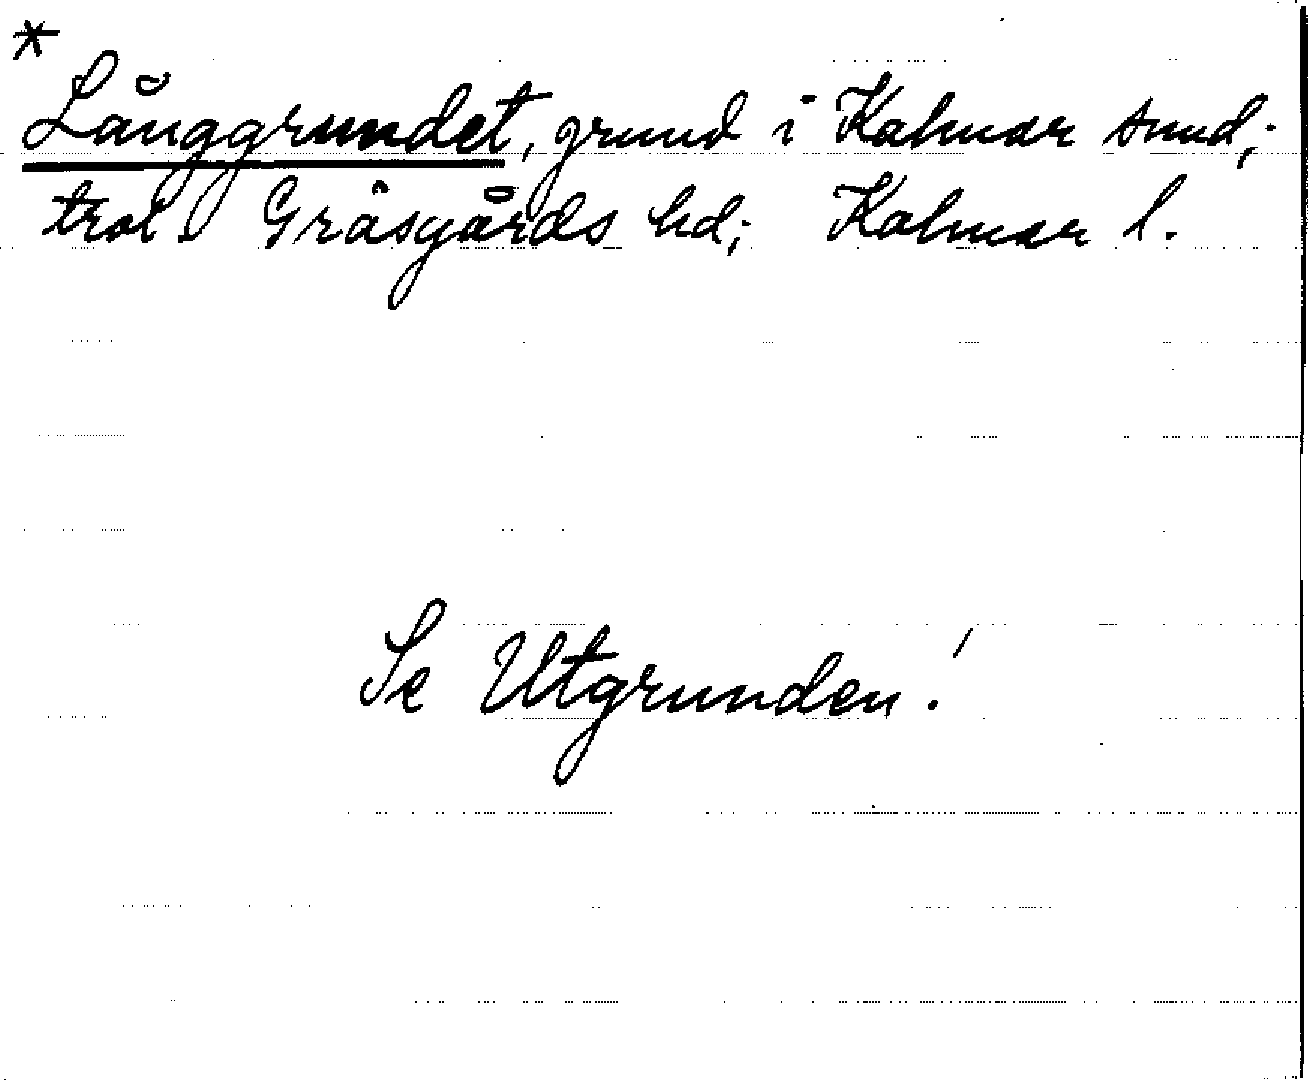 *
Långgrundet, grund i Kalmar sund;
trol. Gräsgårds hd; Kalmar l.
Se Utgrunden!